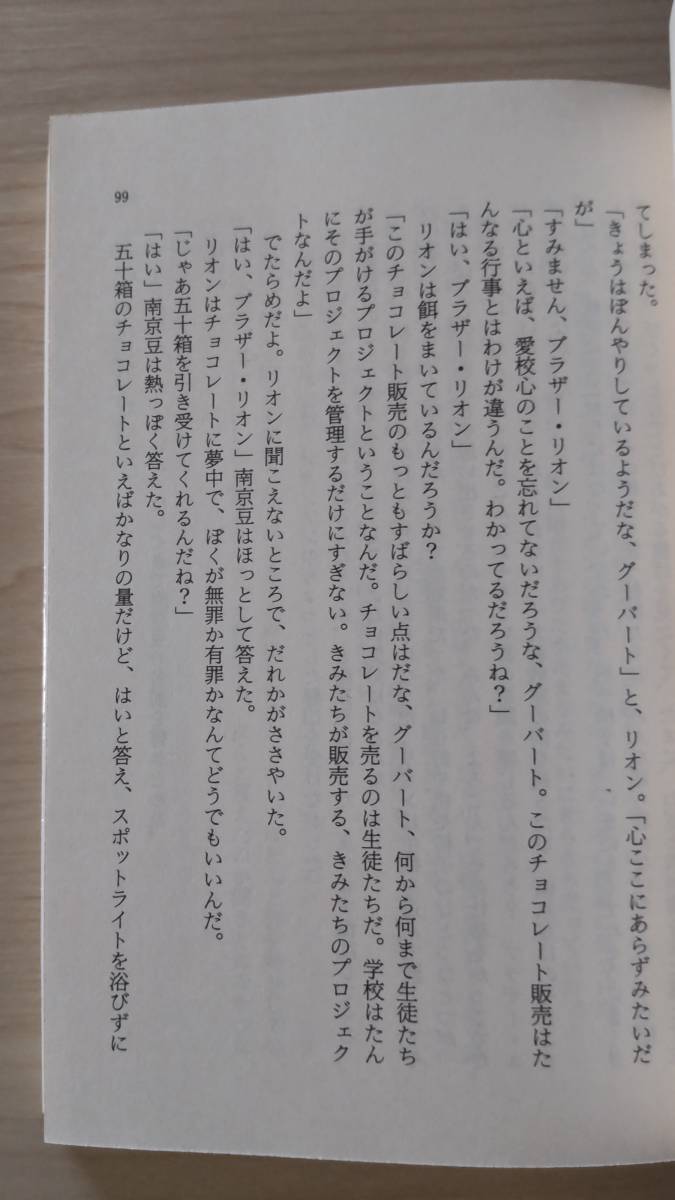 てしまった。
「きょうはぼんやりしているようだな、グーバート」と、リオン。「心ここにあらずみたいだ
が」
「すみません、ブラザー・リオン」
「心といえば、愛校心のことを忘れてないだろうな、グーバート。このチョコレート販売はた
んなる行事とはわけが違うんだ。わかってるだろうね？」
「はい、ブラザー・リオン」
リオンは餌をまいているんだろうか？
「このチョコレート販売のもっともすばらしい点はだな、グーバート、何から何まで生徒たち
が手がけるプロジェクトということなんだ。チョコレートを売るのは生徒たちだ。学校はたん
にそのプロジェクトを管理するだけにすぎない。きみたちが販売する、きみたちのプロジェク
トなんだよ」
でたらめだよ。リオンに聞こえないところで、だれかがささやいた。
「はい、ブラザー・リオン」南京豆はほっとして答えた。
リオンはチョコレートに夢中で、ぼくが無罪か有罪かなんてどうでもいいんだ。
「じゃあ五十箱を引き受けてくれるんだね？」
「はい」南京豆は熱っぽく答えた。
五十箱のチョコレートといえばかなりの量だけど、はいと答え、スポットライトを浴びずに
99